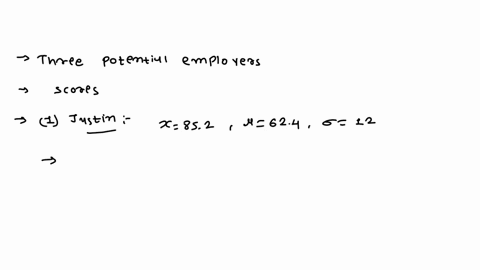 → Three potential employers
→ scores
→ (1) Justin :- x=85.2 , μ=62.4 , σ=12
→